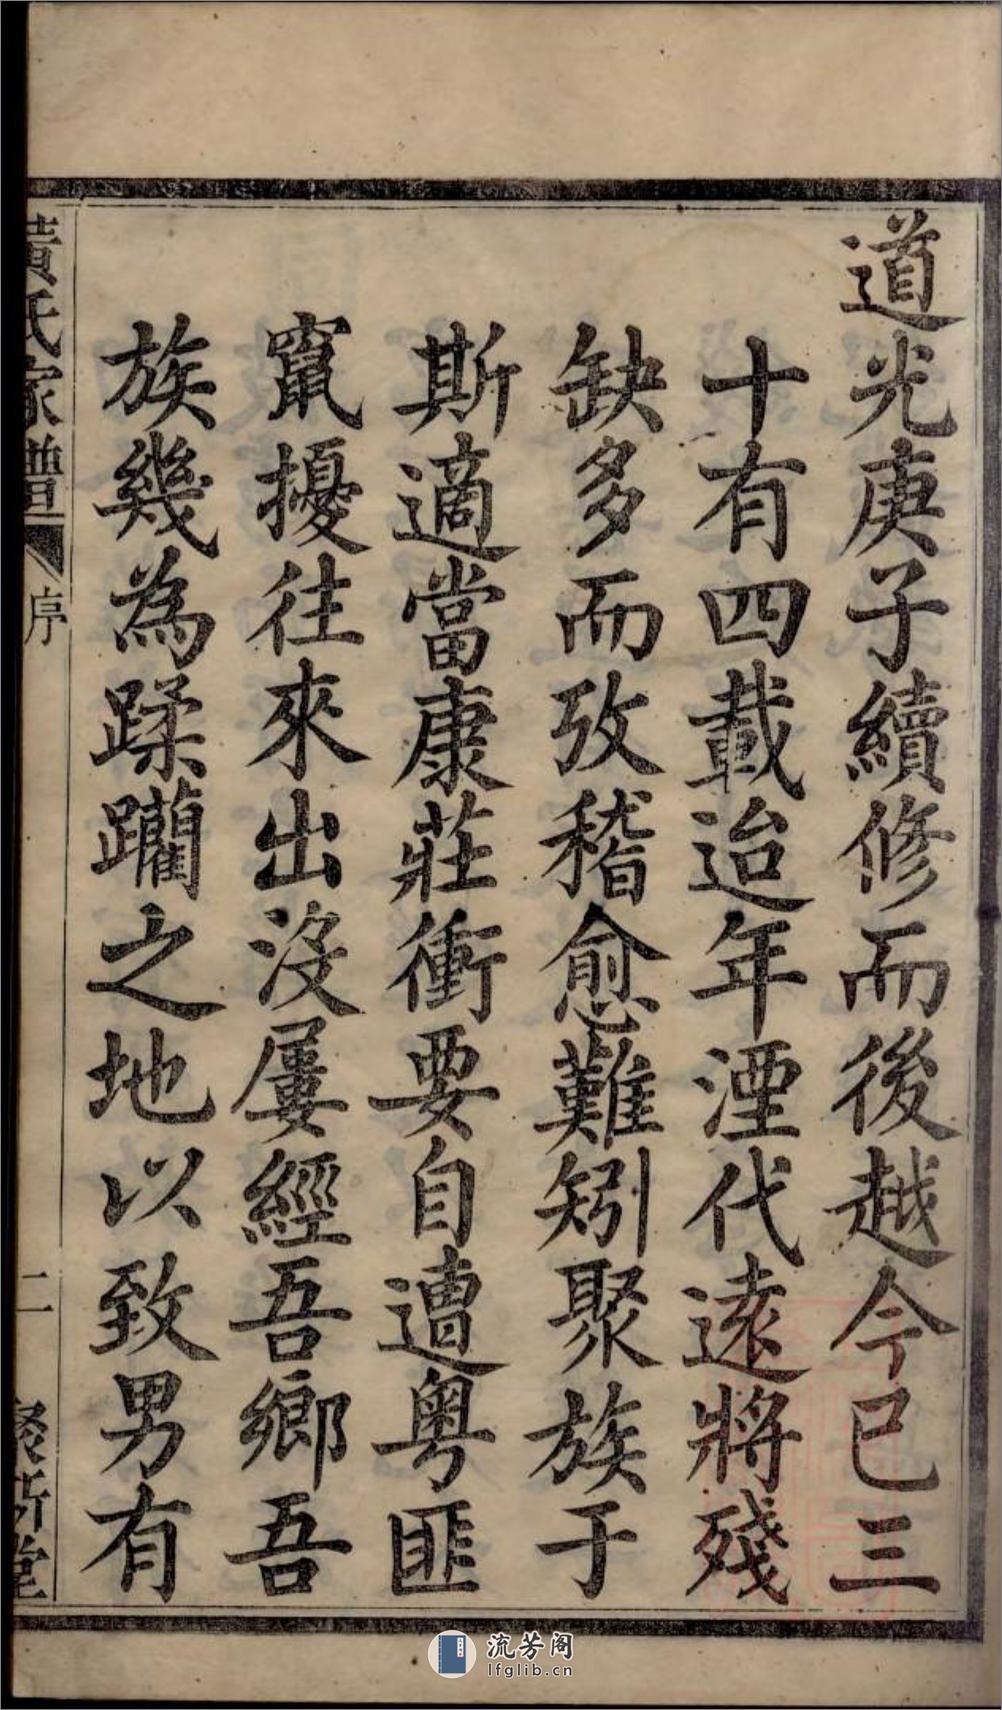 道光庚子續修而後越今已三
十有四載迨年湮代遠將殘
缺多而攷稽愈難矧聚族于
斯適當康莊衝要自遭粤匪
竄擾往來出沒屢經吾鄉吾
族幾為蹂躪之地以致男有
黃氏家譜
序
二
聚斯堂
流芳阁
lfglib.cn